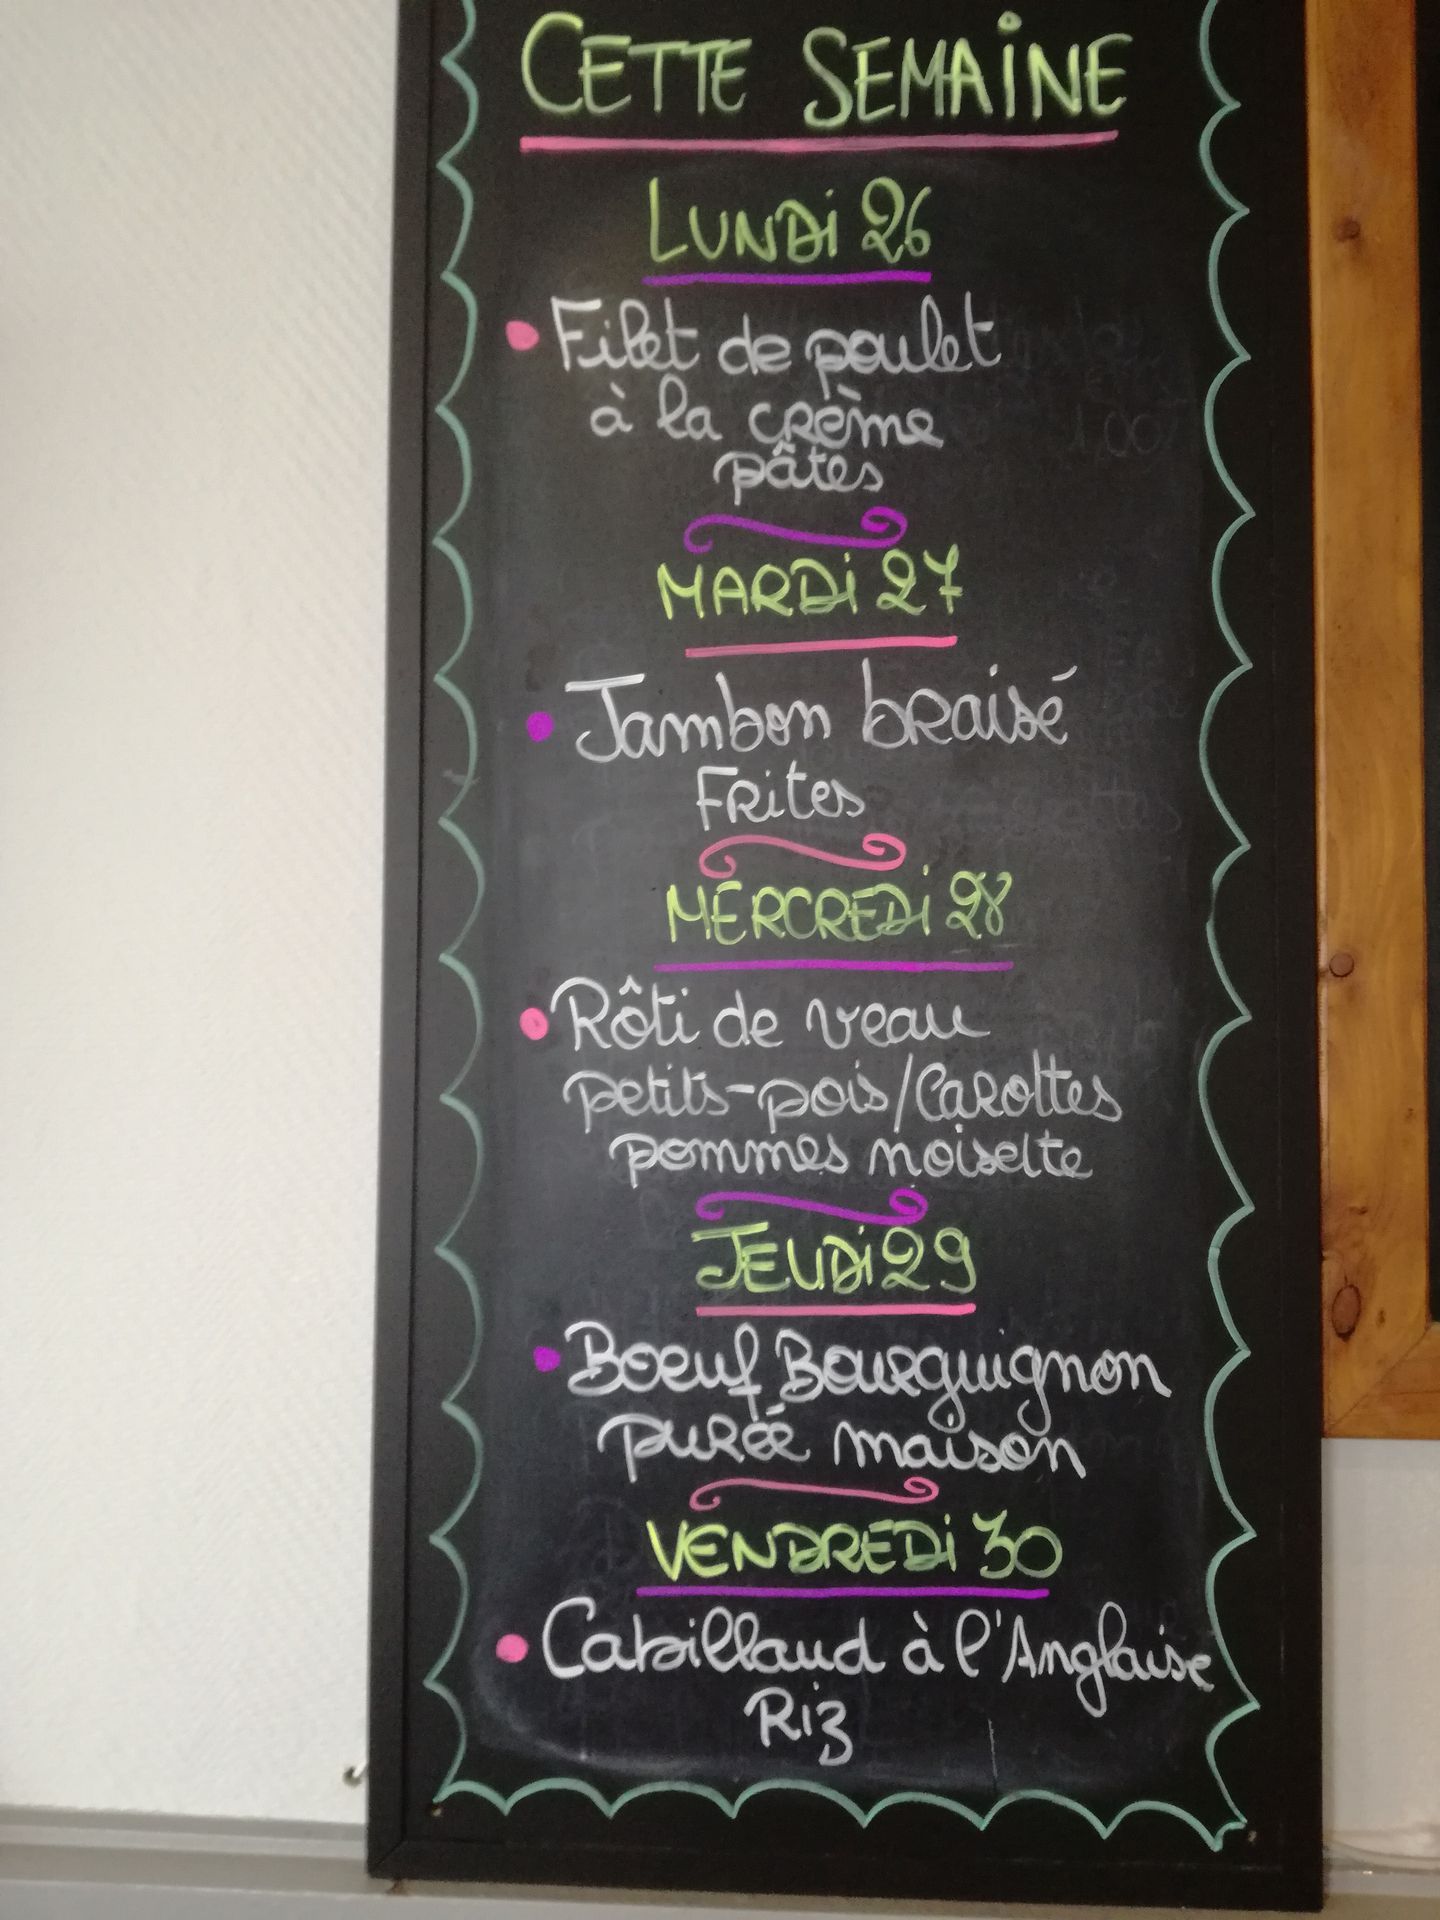 CETTE SEMAINE
LUNDI 26
Filet de poulet
à la crème
pâtes
MARDI 27
Jambon braisé
Frites
MERCREDI 28
Rôti de veau
petits-pois/Carottes
pommes noisette
JEUDI 29
Boeuf Bourguignon
purée maison
VENDREDI 30
Cabillaud à l'Anglaise
Riz